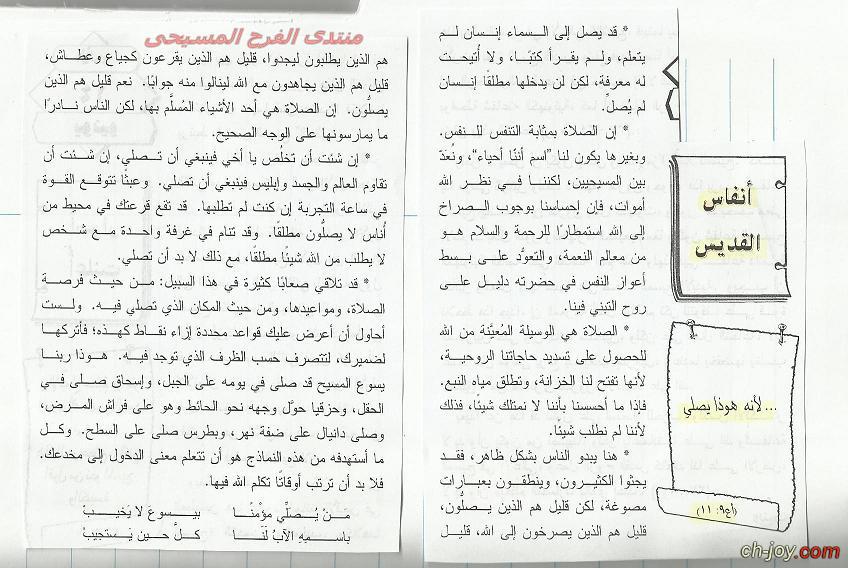 منتدى الفرح المسيحى
أنفاس
القديس
...لأنه هوذا يصلي
(أع٩: ١١)
* قد يصل إلى السماء إنسان لم
يتعلم، ولم يقرأ كتبًا، ولا أُتيحت
له معرفة، لكن لن يدخلها مطلقًا إنسان
لم يُصلِّ.
* إن الصلاة بمثابة التنفس للنفس.
وبغيرها يكون لنا "اسم أننا أحياء"، ونُعَدّ
بين المسيحيين، لكننا في نظر الله
أموات، فإن إحساسنا بوجوب الصراخ
إلى الله استمطارًا للرحمة والسلام هو
من معالم النعمة، والتعوُّد على بسط
أعواز النفس في حضرته دليل على
روح التبني فينا.
* الصلاة هي الوسيلة المُعيَّنة من الله
للحصول على تسديد حاجاتنا الروحية،
لأنها تفتح لنا الخزانة، وتطلق مياه النبع.
فإذا ما أحسسنا بأننا لا نمتلك شيئًا، فذلك
لأننا لم نطلب شيئًا.
* هنا يبدو الناس بشكل ظاهر، فقد
يجثوا الكثيرون، وينطقون بعبارات
مصوغة، لكن قليل هم الذين يصلُّون،
قليل هم الذين يصرخون إلى الله، قليل
هم الذين يطلبون ليجدوا، قليل هم الذين يقرعون كجياع وعطاش،
قليل هم الذين يجاهدون مع الله لينالوا منه جوابًا. نعم قليل هم الذين
يصلُّون. إن الصلاة هي أحد الأشياء المُسلَّم بها، لكن الناس نادرًا
ما يمارسونها على الوجه الصحيح.
* إن شئت أن تخلُص يا أخي فينبغي أن تصلي، إن شئت أن
تقاوم العالم والجسد وإبليس فينبغي أن تصلي. وعبثًا تتوقع القوة
في ساعة التجربة إن كنت لم تطلبها. قد تقع قرعتك في محيط من
أُناس لا يصلُّون مطلقًا. وقد تنام في غرفة واحدة مع شخص
لا يطلب من الله شيئًا مطلقًا، مع ذلك لا بد أن تصلي.
* قد تلاقي صعابًا كثيرة في هذا السبيل: من حيث فرصة
الصلاة، ومواعيدها، ومن حيث المكان الذي تصلي فيه. ولست
أحاول أن أعرض عليك قواعد محددة إزاء نقاط كهذه؛ فأتركها
لضميرك، لتتصرف حسب الظرف الذي توجد فيه. هوذا ربنا
يسوع المسيح قد صلى في يومه على الجبل، وإسحاق صلى في
الحقل، وحزقيا حوَّل وجهه نحو الحائط وهو على فراش المرض،
وصلى دانيال على ضفة نهر، وبطرس صلى على السطح. وكل
ما أستهدفه من هذه النماذج هو أن تتعلم معنى الدخول إلى مخدعك.
فلا بد أن ترتب أوقاتًا تكلم الله فيها.
مَنْ يُصلِّي مؤْمنًا بيسوعَ لا يَخيبْ
باسمهِ الآبُ لَنَا كلَّ حين يَستجيبْ
ch-joy.com